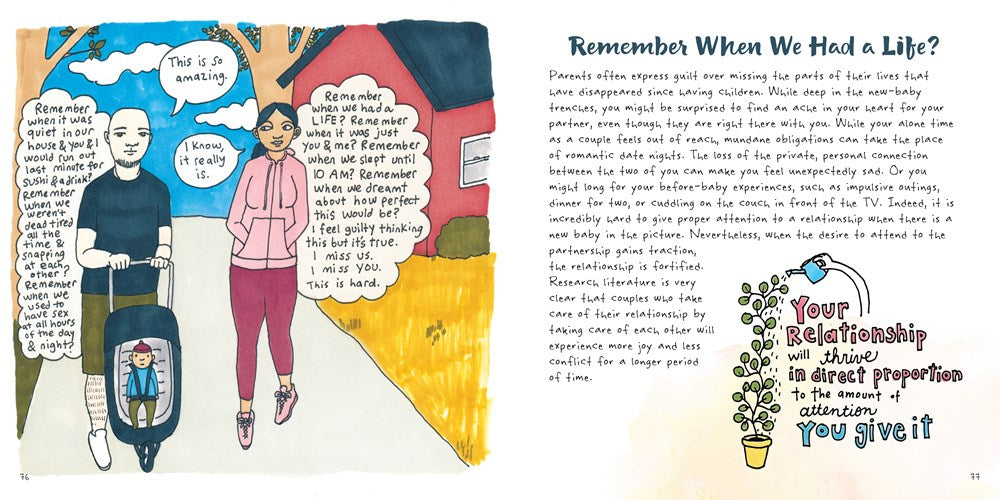 This is so
amazing.
I know,
it really
is.
Remember
when it was
quiet in our
house & you & I
would run out
last minute for
sushi & a drink?
Remember
when we
weren't
dead tired
all the
time &
snapping
at each
other?
Remember
when we
used to
have sex
at all hours
of the day
& night?
Remember
when we had a
LIFE? Remember
when it was just
you & me? Remember
when we slept until
10 AM? Remember
when we dreamt
about how perfect
this would be?
I feel guilty thinking
this but it's true.
I miss us.
I miss you.
This is hard.
76
Remember When We Had a Life?
Parents often express guilt over missing the parts of their lives that
have disappeared since having children. While deep in the new-baby
trenches, you might be surprised to find an ache in your heart for your
partner, even though they are right there with you. While your alone time
as a couple feels out of reach, mundane obligations can take the place
of romantic date nights. The loss of the private, personal connection
between the two of you can make you feel unexpectedly sad. Or you
might long for your before-baby experiences, such as impulsive outings,
dinner for two, or cuddling on the couch in front of the TV. Indeed, it is
incredibly hard to give proper attention to a relationship when there is a
new baby in the picture. Nevertheless, when the desire to attend to the
partnership gains traction,
the relationship is fortified.
Research literature is very
clear that couples who take
care of their relationship by
taking care of each other will
experience more joy and less
conflict for a longer period
of time.
Your
Relationship
will thrive
in direct proportion
to the amount of
attention
You give it
77